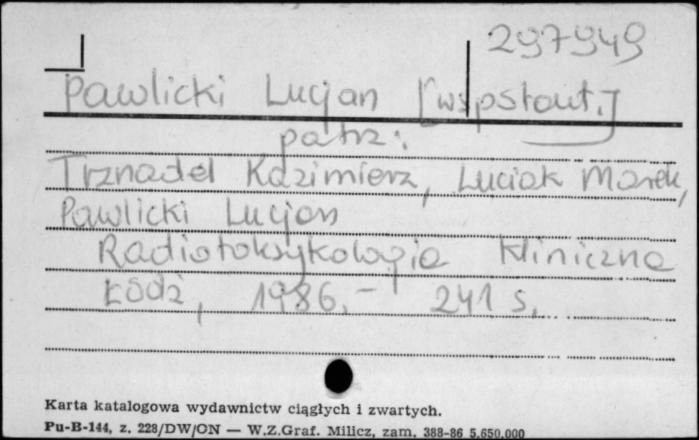 297949
Pawlicki Lucjan [wspołaut.]
patrz:
Trznadel Kazimierz, Luciak Marek,
Pawlicki Lucjan
Radiotoksykologia kliniczna
Łódź, 1986.- 241 s.
Karta katalogowa wydawnictw ciągłych i zwartych.
Pu-B-144, z. 228/DW/ON — W.Z.Graf. Milicz, zam. 388-86 5.650.000